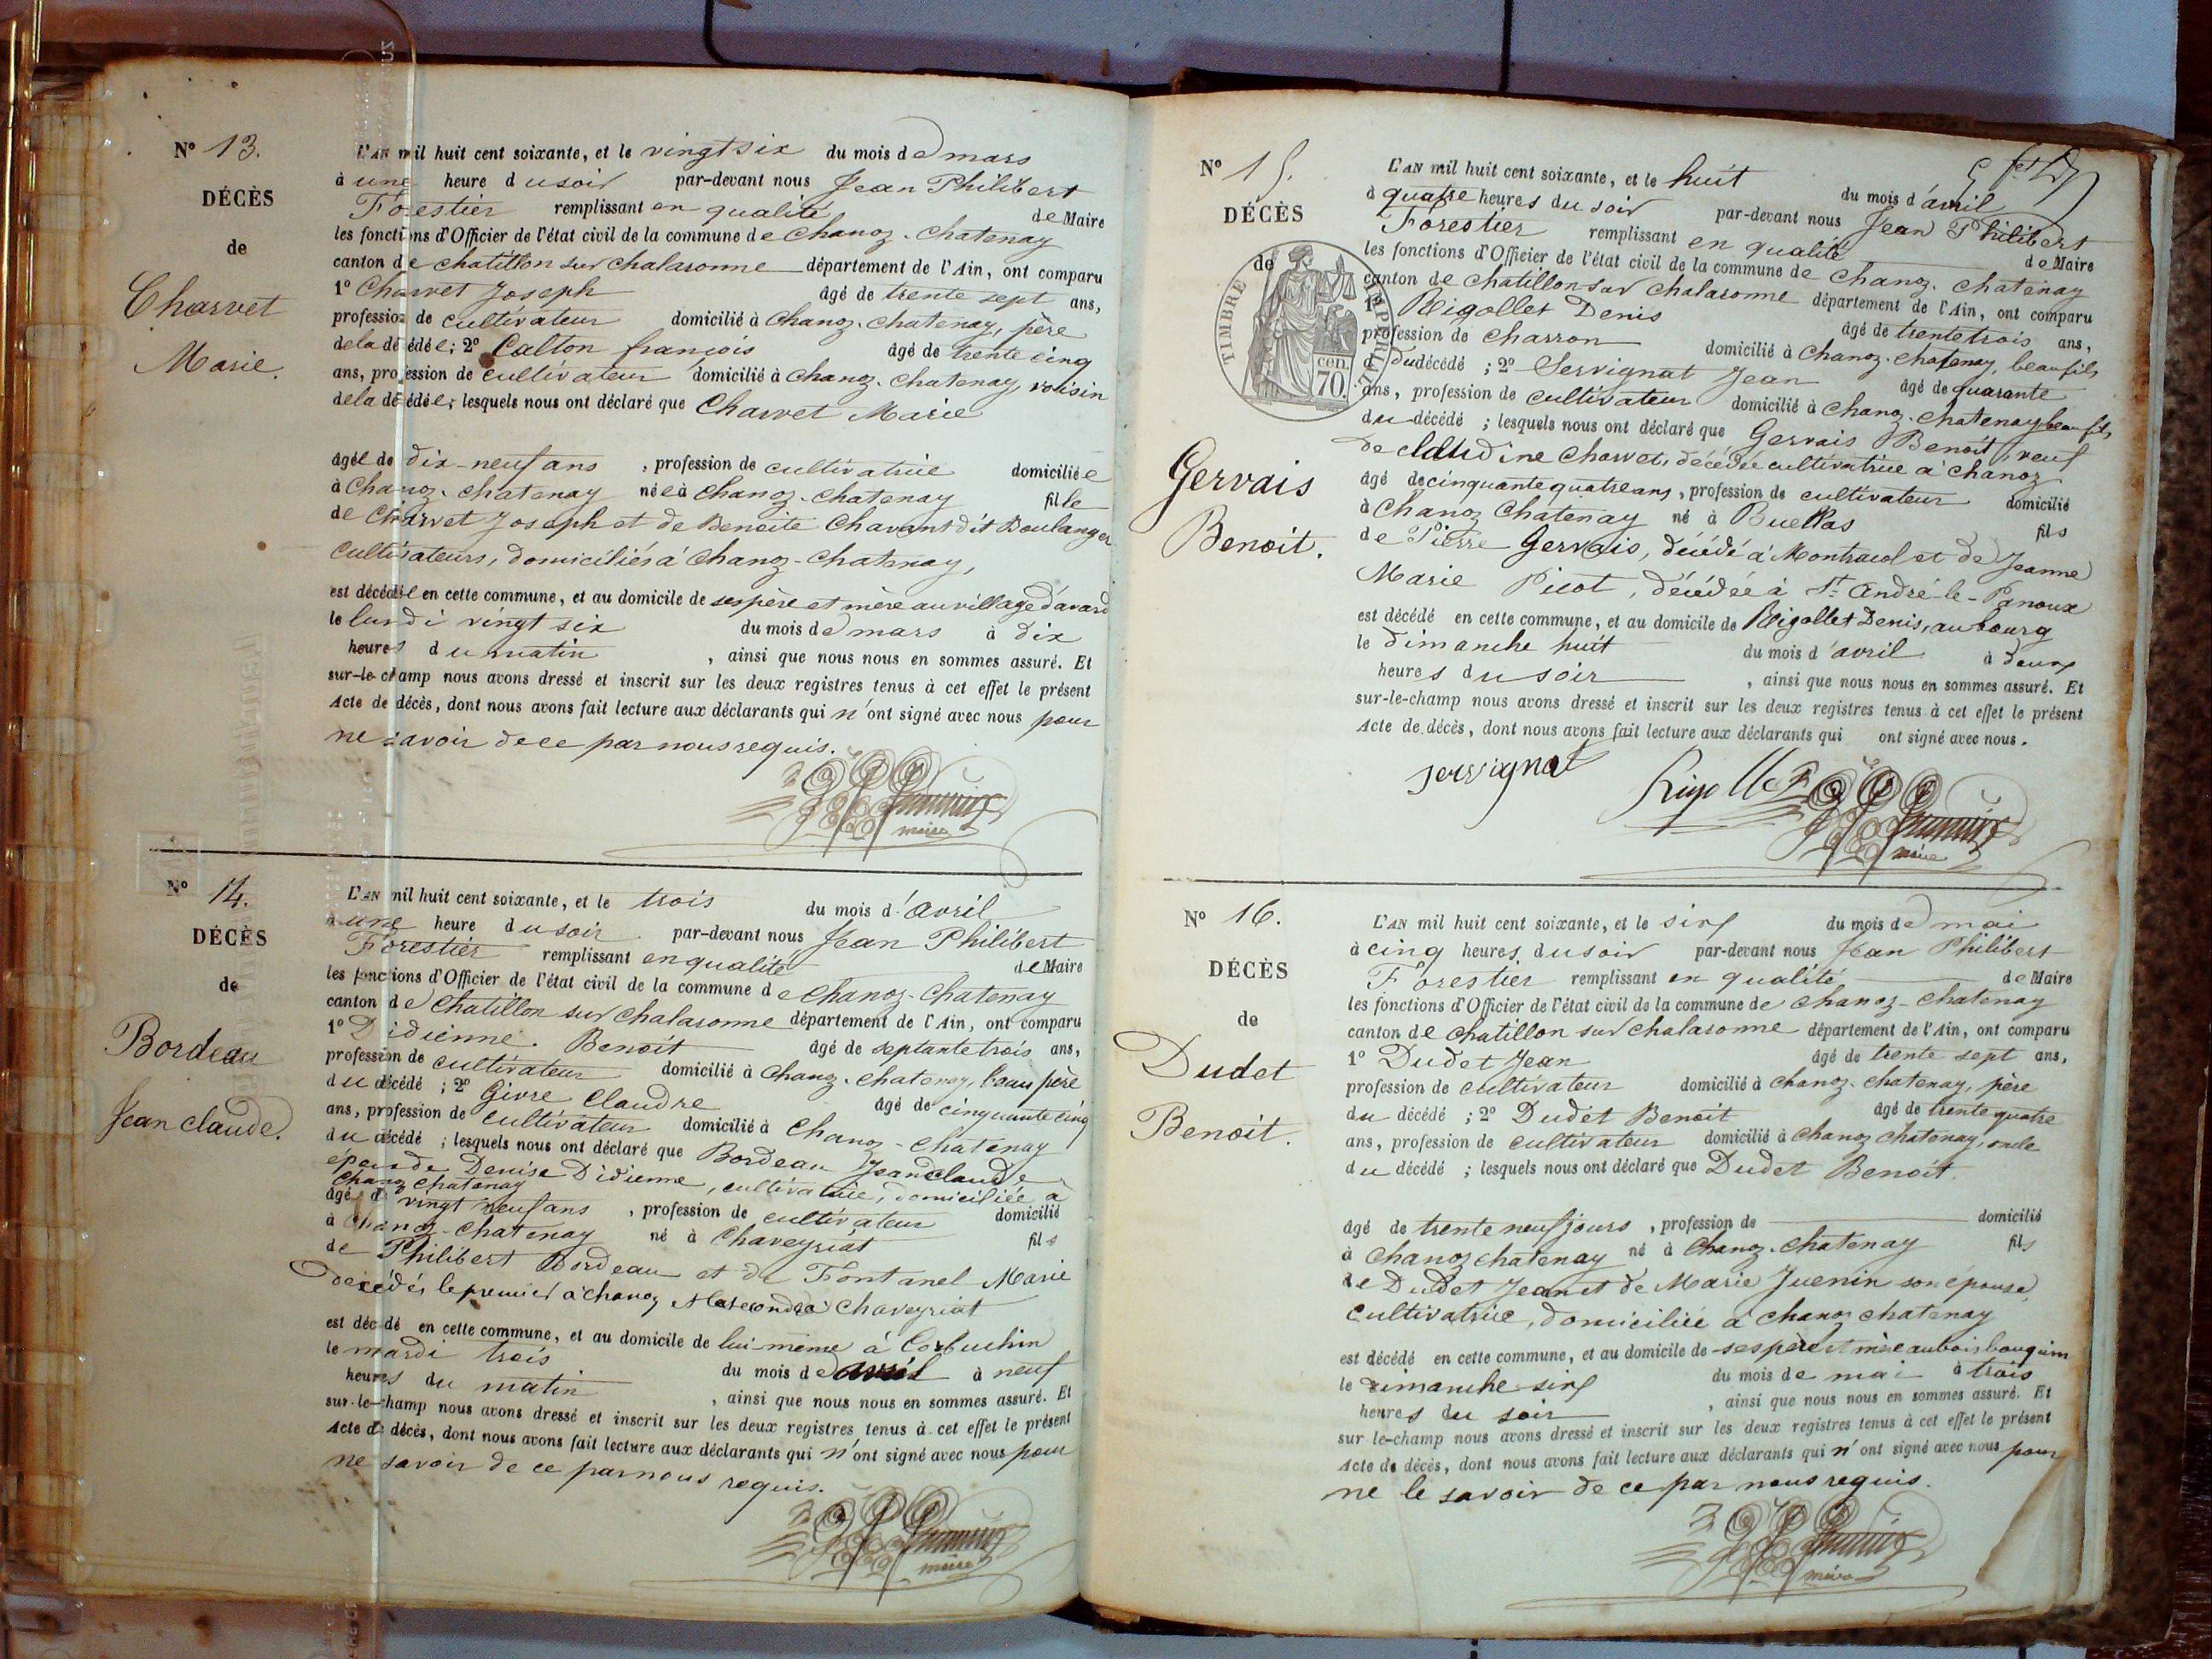 N° 13.
DÉCÈS
de
Charvet
Marie.
L'AN mil huit cent soixante, et le vingt six du mois de mars
à une heure du soir par-devant nous Jean Philibert
Forestier remplissant en qualité de Maire
les fonctions d'Officier de l'état civil de la commune de Chanoz-Chatenay
canton de chatillon sur chalaronne département de l'Ain, ont comparu
1° Charvet Joseph âgé de trente sept ans,
profession de cultivateur domicilié à Chanoz-chatenay, père
de la décédée; 2° Calton françois âgé de trente cinq
ans, profession de cultivateur domicilié à Chanoz-Chatenay, voisin
de la décédée; lesquels nous ont déclaré que Charvet Marie
âgée de dix-neuf ans, profession de cultivatrice domiciliée
à Chanoz-chatenay née à Chanoz-Chatenay fille
de Charvet Joseph et de Benoite Chavant dit Boulanger
cultivateurs, domiciliés à Chanoz-Chatenay,
est décédée en cette commune, et au domicile de ses père et mère au village d'avard
le lundi vingt six du mois de mars à dix
heures du matin, ainsi que nous nous en sommes assuré. Et
sur-le-champ nous avons dressé et inscrit sur les deux registres tenus à cet effet le présent
Acte de décès, dont nous avons fait lecture aux déclarants qui n'ont signé avec nous pour
ne savoir de ce par nous requis.
maire
N° 14.
DÉCÈS
de
Bordeau
Jean claude.
L'AN mil huit cent soixante, et le trois du mois d'avril
à une heure du soir par-devant nous Jean Philibert
Forestier remplissant en qualité de Maire
les fonctions d'Officier de l'état civil de la commune de Chanoz-Chatenay
canton de Chatillon sur Chalaronne département de l'Ain, ont comparu
1° Didienne Benoit âgé de septante trois ans,
profession de cultivateur domicilié à Chanoz-chatenay, beau père
du décédé; 2° Givre Claudre âgé de cinquante cinq
ans, profession de cultivateur domicilié à Chanoz-chatenay
du décédé; lesquels nous ont déclaré que Bordeau Jean claude
époux de Denise Didienne, cultivatrice, domiciliée à
Chanoz chatenay
âgé de vingt neuf ans, profession de cultivateur domicilié
à Chanoz-Chatenay né à Chaveyriat fils
de Philibert Bordeau et de Fontanel Marie
décédés le premier à chanoz et la seconde à Chaveyriat
est décédé en cette commune, et au domicile de lui-même à Corbuchin
le mardi trois du mois de avril à neuf
heures du matin, ainsi que nous nous en sommes assuré. Et
sur-le-champ nous avons dressé et inscrit sur les deux registres tenus à cet effet le présent
Acte de décès, dont nous avons fait lecture aux déclarants qui n'ont signé avec nous pour
ne savoir de ce par nous requis.
maire
N° 15.
DÉCÈS
de
TIMBRE IMPÉRIAL
70. cen.
Gervais
Benoit.
L'AN mil huit cent soixante, et le huit du mois d'avril
à quatre heures du soir par-devant nous Jean Philibert
Forestier remplissant en qualité de Maire
les fonctions d'Officier de l'état civil de la commune de Chanoz-Chatenay
canton de Chatillon sur Chalaronne département de l'Ain, ont comparu
1° Rigollet Denis âgé de trente trois ans,
profession de Charron domicilié à Chanoz-Chatenay, beau fils
du décédé; 2° Servignat Jean âgé de quarante
ans, profession de cultivateur domicilié à Chanoz-Chatenay beau fils
du décédé; lesquels nous ont déclaré que Gervais Benoit, veuf
de claudine Charvet, décédée cultivatrice à Chanoz
âgé de cinquante quatre ans, profession de cultivateur domicilié
à Chanoz Chatenay né à Buellas fils
de Pierre Gervais, décédé à Montracol et de Jeanne
Marie Picot, décédée à St andré-le-Panoux
est décédé en cette commune, et au domicile de Rigollet Denis, au bourg
le dimanche huit du mois d'avril à deux
heures du soir, ainsi que nous nous en sommes assuré. Et
sur-le-champ nous avons dressé et inscrit sur les deux registres tenus à cet effet le présent
Acte de décès, dont nous avons fait lecture aux déclarants qui ont signé avec nous.
servignat Rigollet
maire
N° 16.
DÉCÈS
de
Dudet
Benoit.
L'AN mil huit cent soixante, et le six du mois de mai
à cinq heures du soir par-devant nous Jean Philibert
Forestier remplissant en qualité de Maire
les fonctions d'Officier de l'état civil de la commune de Chanoz-Chatenay
canton de Chatillon sur Chalaronne département de l'Ain, ont comparu
1° Dudet Jean âgé de trente sept ans,
profession de cultivateur domicilié à chanoz-chatenay, père
du décédé; 2° Dudet Benoit âgé de trente quatre
ans, profession de cultivateur domicilié à Chanoz chatenay, oncle
du décédé; lesquels nous ont déclaré que Dudet Benoit.
âgé de trente neuf jours, profession de domicilié
à Chanoz chatenay né à Chanoz-Chatenay fils
de Dudet Jean et de Marie Juenin son épouse,
cultivatrice, domiciliée à chanoz chatenay
est décédé en cette commune, et au domicile de ses père et mère au bois bouquin
le dimanche six du mois de mai à trois
heures du soir, ainsi que nous nous en sommes assuré. Et
sur-le-champ nous avons dressé et inscrit sur les deux registres tenus à cet effet le présent
Acte de décès, dont nous avons fait lecture aux déclarants qui n'ont signé avec nous pour
ne le savoir de ce par nous requis.
maire